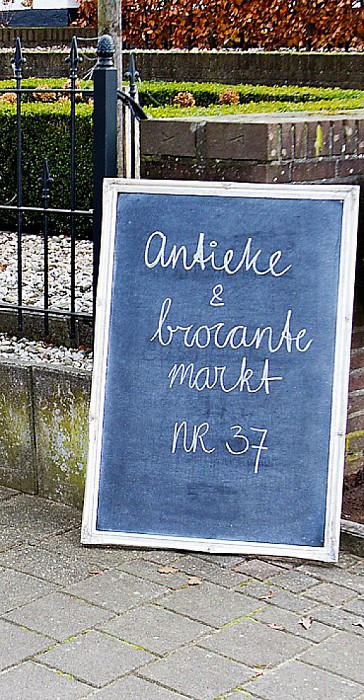 Antieke
&
brocante
markt
NR 37